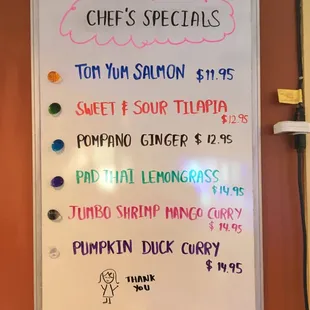 CHEF'S SPECIALS
TOM YUM SALMON $11.95
SWEET & SOUR TILAPIA
$12.95
POMPANO GINGER $12.95
PAD THAI LEMONGRASS
$14.95
JUMBO SHRIMP MANGO CURRY
$14.95
PUMPKIN DUCK CURRY
$14.95
THANK
YOU